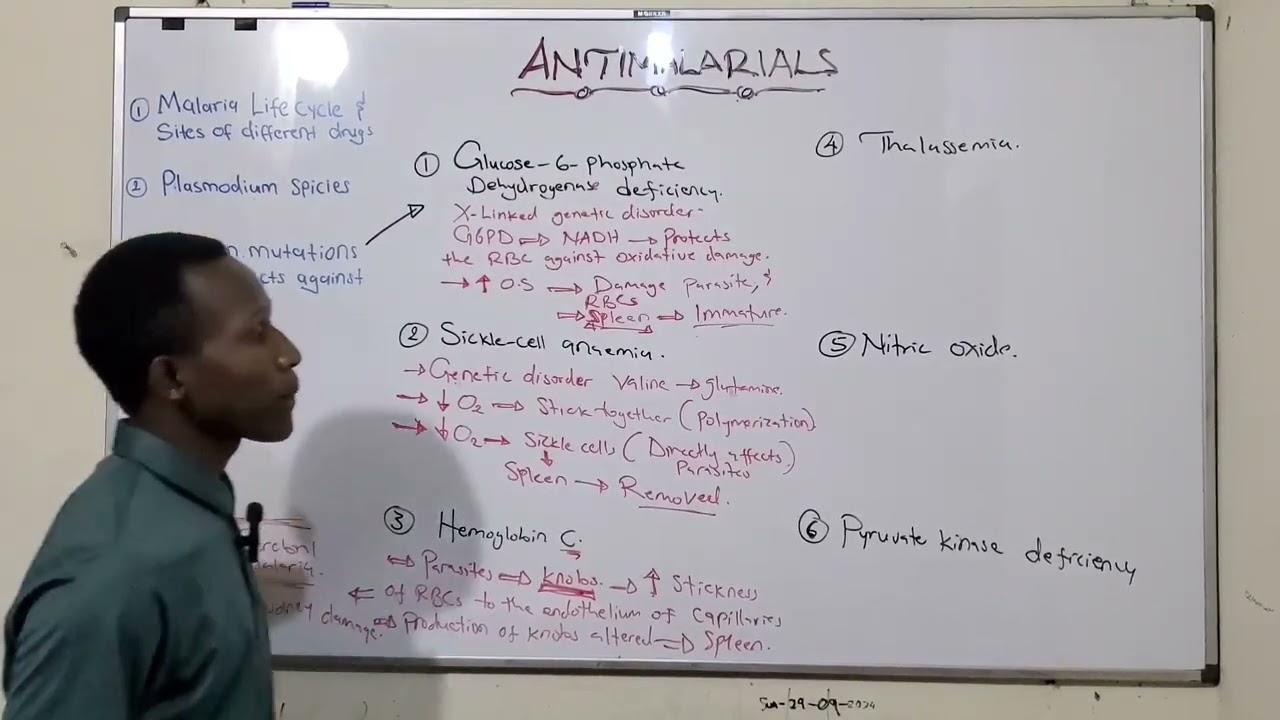 ANTIMALARIALS
① Malaria Life Cycle &
Sites of different drugs
② Plasmodium Spicies
mutations
against
① Glucose-6-phosphate
Dehydrogenase deficiency.
X-Linked genetic disorder-
G6PD ⇒ NADH → Protects
the RBC against oxidative damage.
→ ↑ O.S ⇒ Damage parasite, &
RBCs
⇒ Spleen ⇒ Immature.
② Sickle-cell anaemia.
→ Genetic disorder Valine → glutamine.
→ ↓ O₂ ⇒ Stick together (Polymerization)
→ ↓ O₂ → Sickle cells (Directly affects
Parasites)
↓
Spleen → Removed.
③ Hemoglobin C.
⇔ Parasites ⇒ knobs. → ↑ Stickness
⇐ Of RBCs to the endothelium of Capillaries
damage. ⇒ Production of knobs altered ⇒ Spleen.
④ Thalassemia.
⑤ Nitric oxide.
⑥ Pyruvate kinase deficiency
Sun-29-09-2024